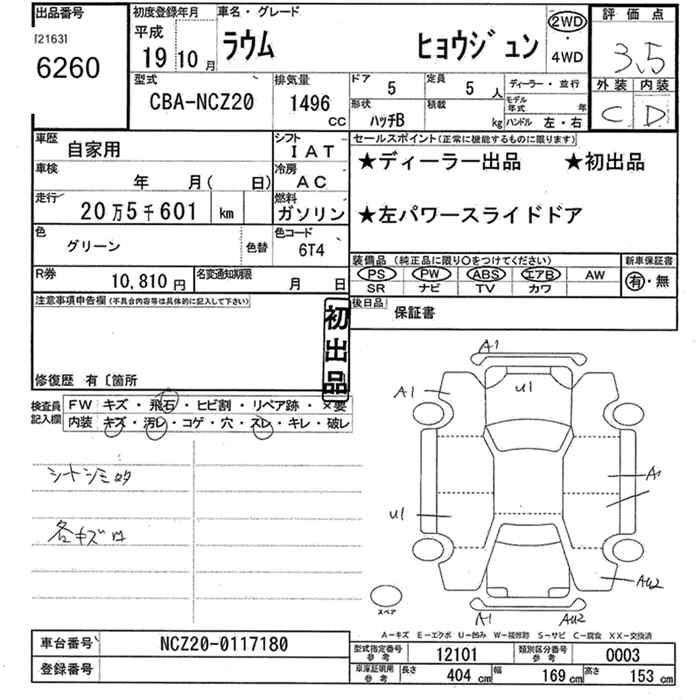 出品番号
[2163]
6260
初度登録年月
平成
19 10月
車名・グレード
ラウム ヒョウジュン
2WD
・
4WD
評価点
3.5
外装 内装
C D
型式
CBA-NCZ20
排気量
1496
CC
ドア
5
定員
5 人
ディーラー・並行
形状
ハッチB
積載
kg
モデル年式 年
ハンドル 左・右
車歴
自家用
シフト
IAT
車検
年 月( 日)
冷房
AC
走行
20万5千601 km
燃料
ガソリン
色
グリーン
色替
色コード
6T4
R券
10,810円
名変通知期限
月 日
セールスポイント(正常に機能するものに限ります)
★ディーラー出品 ★初出品
★左パワースライドドア
装備品(純正品に限り○をつけてください)
PS PW ABS エアB AW
SR ナビ TV カワ
新車保証書
有・無
後日品
保証書
注意事項申告欄(不具合内容等は具体的に記入して下さい)
初出品
修復歴 有〔箇所
検査員
記入欄
FW キズ・飛石・ヒビ割・リペア跡・×要
内装 キズ・汚レ・コゲ・穴・スレ・キレ・破レ
シートシミ
各キズ
A1
A1
U1
A1
U1
AU2
A1
AU2
スペア
A-キズ E-エクボ U-凹み W-補修跡 S-サビ C-腐食 XX-交換済
車台番号
NCZ20-0117180
登録番号
型式指定番号
参考
12101
類別区分番号
参考
0003
車庫証明用
参考
長さ
404 cm
幅
169 cm
高さ
153 cm